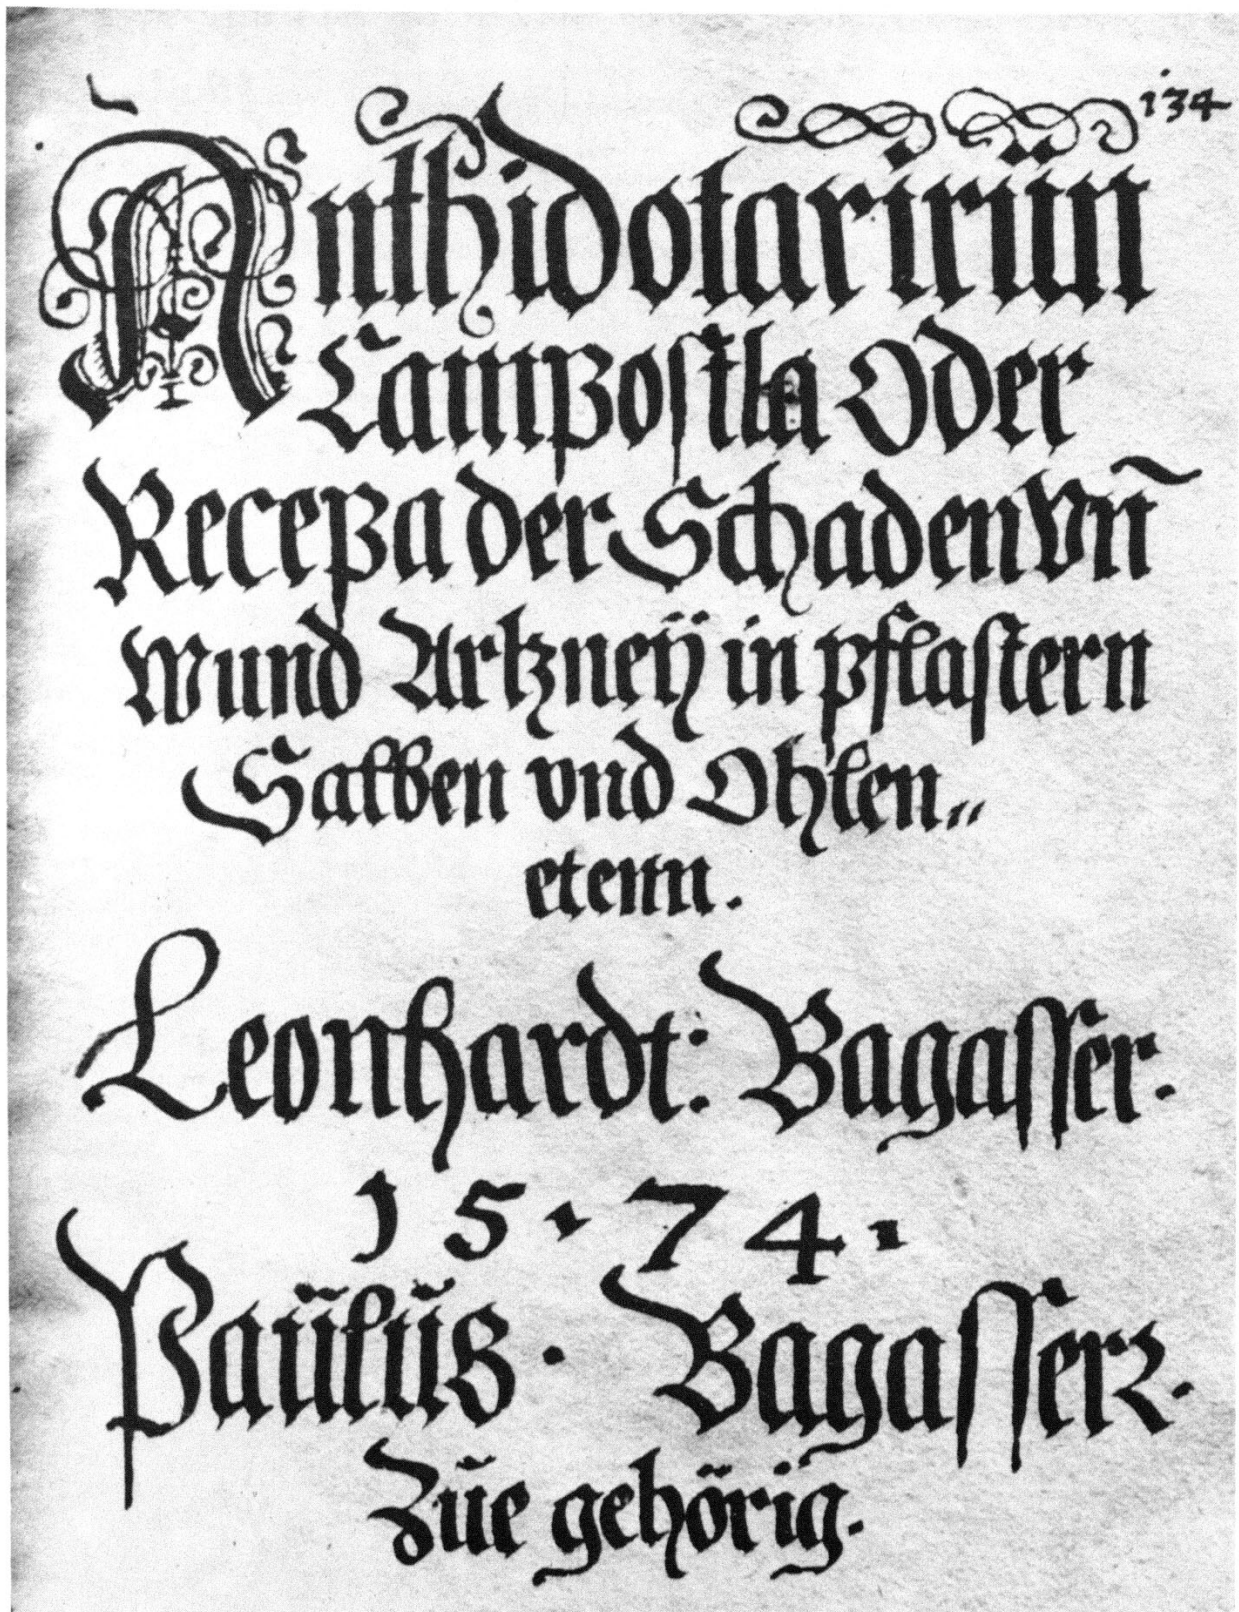 134
Anthidotarirün
Campostla Oder
Recepta der Schaden Vñ
Wund Artzneÿ in pflastern
Salben vnd Ohlen„
etenn.
Leonhardt: Bagasser.
15·74·
Paülüs· Bagasser.
Züe gehörig.